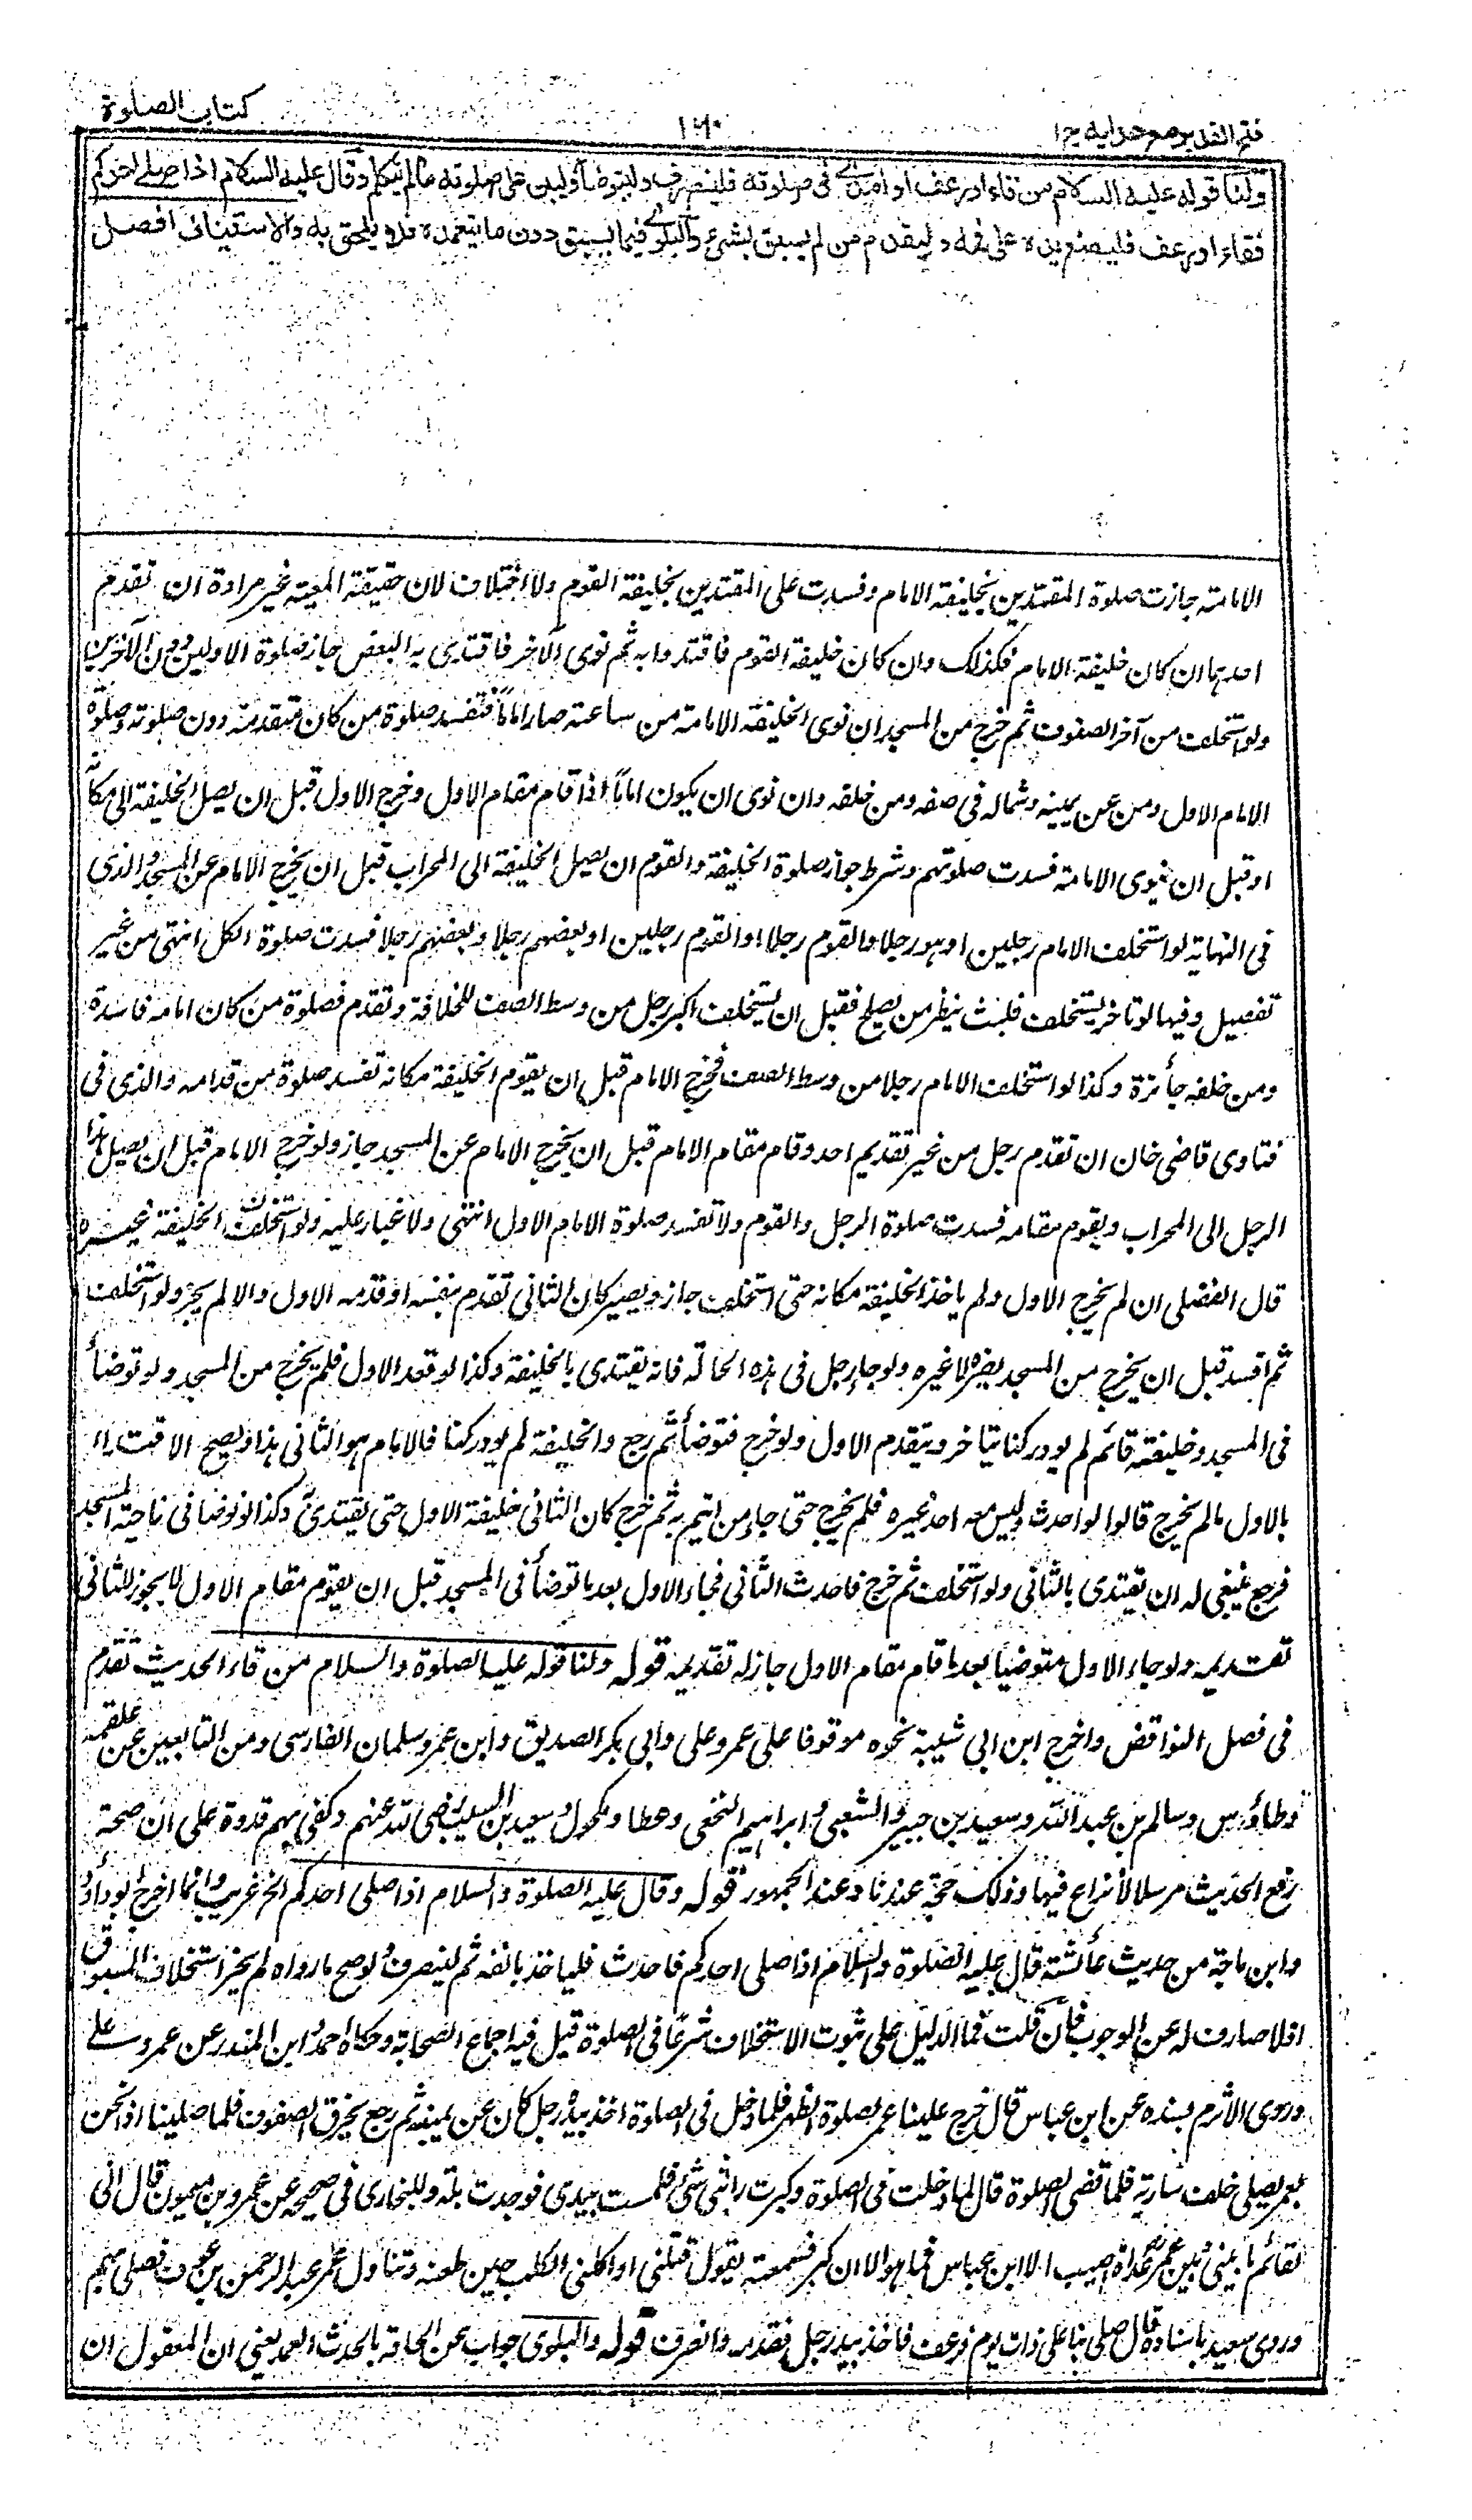 فتح القدير مع هدايه ج ١
١٦٠
كتاب الصلوة
ولنا قوله عليه السلام من قاء او رعف او امذى فى صلوته فلينصرف وليتوضأ وليبن على صلوته مالم يتكلم وقال عليه السلام اذا صلى احدكم
فقاء او رعف فليضع يده على فمه وليقدم من لم يسبق بشئ والبلوى فيما يسبق دون ما يتعمده فلا يلحق به والاستيناف افضل
الامامة جازت صلوة المقتدين بخليفة الامام وفسدت على المقتدين بخليفة القوم ولا اختلاف لان حقيقة المعية غير مرادة ان تقدم
احدهما ان كان خليفة الامام فكذلك وان كان خليفة القوم فاقتدوا به ثم نوى الآخر فاقتدى به البعض جاز صلوة الاولين دون الآخرين
ولو استخلف من آخر الصفوف ثم خرج من المسجد ان نوى الخليفة الامامة من ساعته صار اماما فتفسد صلوة من كان متقدمه دون صلوته وصلوة
الامام الاول ومن عن يمينه وشماله فى صفه ومن خلفه وان نوى ان يكون اماما اذا قام مقام الاول وخرج الاول قبل ان يصل الخليفة الى مكانه
او قبل ان ينوى الامامة فسدت صلوتهم وشرط جواز صلوة الخليفة والقوم ان يصل الخليفة الى المحراب قبل ان يخرج الامام عن المسجد والذى
فى النهاية لو استخلف الامام رجلين او هو رجلا والقوم رجلا او القوم رجلين او بعضهم رجلا وبعضهم رجلا فسدت صلوة الكل انتهى من غير
تفصيل وفيها لو تاخر ليستخلف فلبث ينظر من يصلح فقبل ان يستخلف كبر رجل من وسط الصف للخلافة وتقدم فصلوة من كان امامه فاسدة
ومن خلفه جائزة وكذا لو استخلف الامام رجلا من وسط الصف فخرج الامام قبل ان يقوم الخليفة مكانه تفسد صلوة من قدامه والذى فى
فتاوى قاضى خان ان تقدم رجل من غير تقديم احد وقام مقام الامام قبل ان يخرج الامام عن المسجد جاز ولو خرج الامام قبل ان يصل هذا
الرجل الى المحراب ويقوم مقامه فسدت صلوة الرجل والقوم ولا تفسد صلوة الامام الاول انتهى ولا غبار عليه ولو استخلف الخليفة غيره
قال الفضلى ان لم يخرج الاول ولم ياخذ الخليفة مكانه حتى استخلف جاز ويصير كان الثانى تقدم بنفسه او قدمه الاول والا لم يجز ولو استخلف
ثم افسد قبل ان يخرج من المسجد يضره لا غيره ولو جاء رجل فى هذه الحالة فانه يقتدى بالخليفة وكذا لو قعد الاول فلم يخرج من المسجد ولو توضأ
فى المسجد وخليفته قائم لم يودركنا يتاخر ويتقدم الاول ولو خرج فتوضأ ثم رجع والخليفة لم يودركنا فالامام هو الثانى هذا ويصح الاقتداء
بالاول مالم يخرج قالوا لو احدث وليس معه احد غيره فلم يخرج حتى جاء من ائتم به ثم خرج كان الثانى خليفة الاول حتى يقتدى به وكذا لو توضأ فى ناحية المسجد
فرجع ينبغى له ان يقتدى بالثانى ولو استخلف ثم خرج فاحدث الثانى فجاء الاول بعد ما توضأ فى المسجد قبل ان يقوم مقام الاول لا يجوز للثانى
تقديمه ولو جاء الاول متوضيا بعد ما قام مقام الاول جاز له تقديمه قوله ولنا قوله عليه الصلوة والسلام من قاء الحديث تقدم
فى فصل النواقض واخرج ابن ابى شيبة نحوه موقوفا على عمر وعلى وابى بكر الصديق وابن عمر وسلمان الفارسى ومن التابعين عن علقمة
وطاؤس وسالم بن عبد الله وسعيد بن جبير والشعبى وابراهيم النخعى وعطا ومكحول وسعيد بن المسيب رضى الله عنهم وكفى بهم قدوة على ان صحة
رفع الحديث مرسلا لا نزاع فيها وذلك حجة عندنا وعند الجمهور قوله وقال عليه الصلوة والسلام اذا صلى احدكم الخ غريب وانما اخرج ابو داؤد
وابن ماجة من حديث عائشة قال عليه الصلوة والسلام اذا صلى احدكم فاحدث فلياخذ بانفه ثم لينصرف ولو صح ما رواه لم يجز استخلاف المسبوق
اذ لا صارف له عن الوجوب فان قلت فما الدليل على ثبوت الاستخلاف شرعا فى الصلوة قيل فيه اجماع الصحابة وحكاه احمد وابن المنذر عن عمر وعلى
وروى الاثرم بسنده عن ابن عباس قال خرج علينا عمر لصلوة الظهر فلما دخل فى الصلوة اخذ بيد رجل كان عن يمينه ثم رجع يخرق الصفوف فلما صلينا اذا نحن
بعمر يصلى خلف سارية فلما قضى الصلوة قال لما دخلت فى الصلوة وكبرت رابنى شئ فلمست بيدى فوجدت بلة وللبخارى فى صحيحه عن عمرو بن ميمون قال انى
لقائم ما بينى وبين عمر غداة اصيب الا ابن عباس فما هو الا ان كبر فسمعته يقول قتلنى او اكلنى الكلب حين طعنه وتناول عمر عبد الرحمن بن عوف فصلى بهم
وروى سعيد باسناده قال صلى بنا على ذات يوم فرعف فاخذ بيد رجل فقدمه وانصرف قوله والبلوى جواب عن الحاقه بالحدث العمد يعنى ان المعقول ان